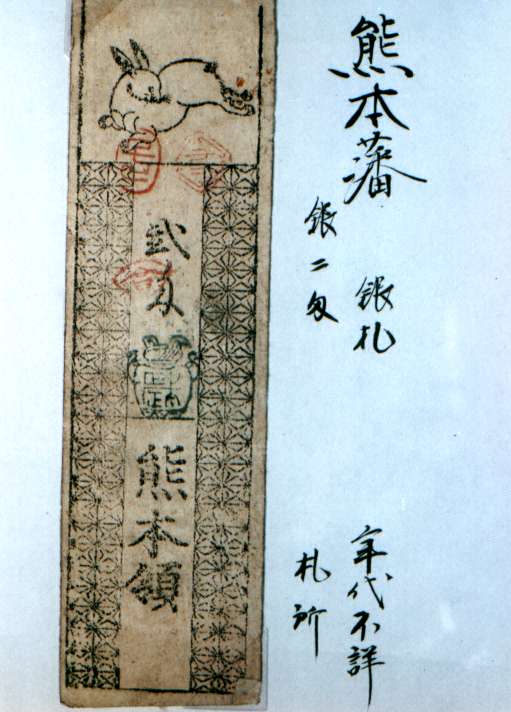 熊本藩
銀札
銀二匁
年代不詳
札所
弐匁
熊本領